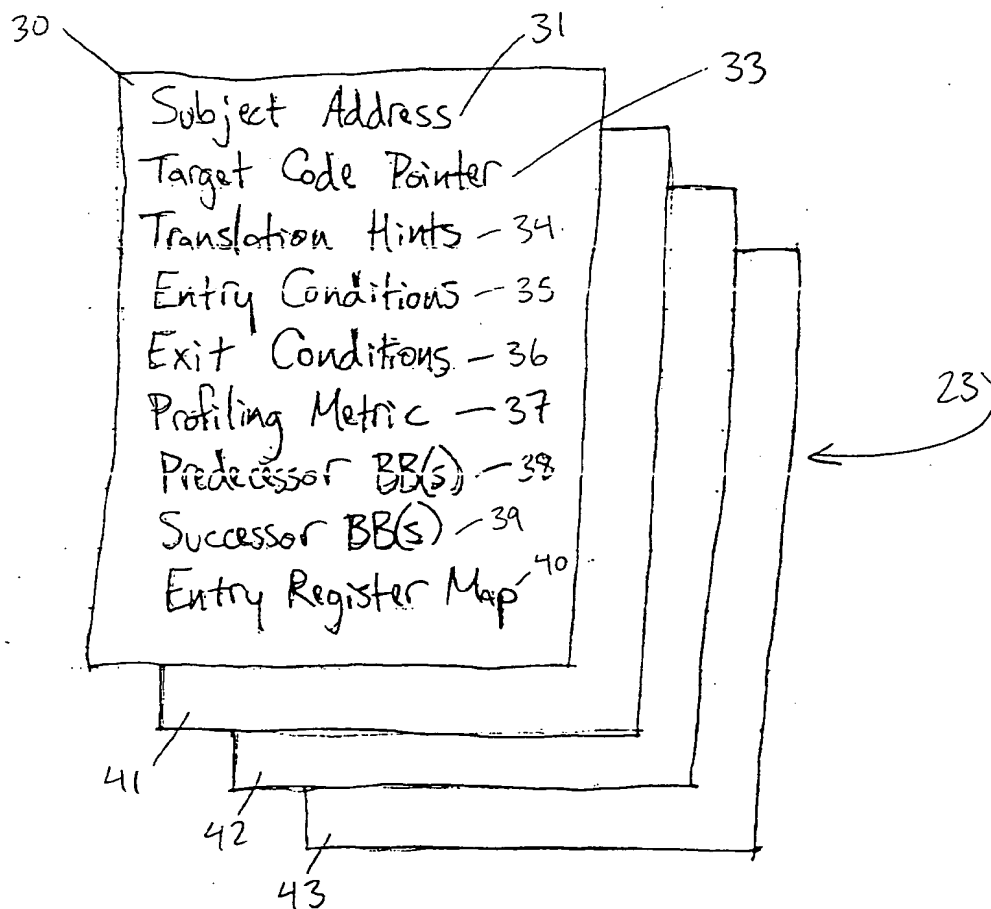 30
31
33
Subject Address
Target Code Pointer
Translation Hints - 34
Entry Conditions - 35
Exit Conditions - 36
Profiling Metric - 37
Predecessor BB(s) - 38
Successor BB(s) - 39
Entry Register Map 40
23
41
42
43